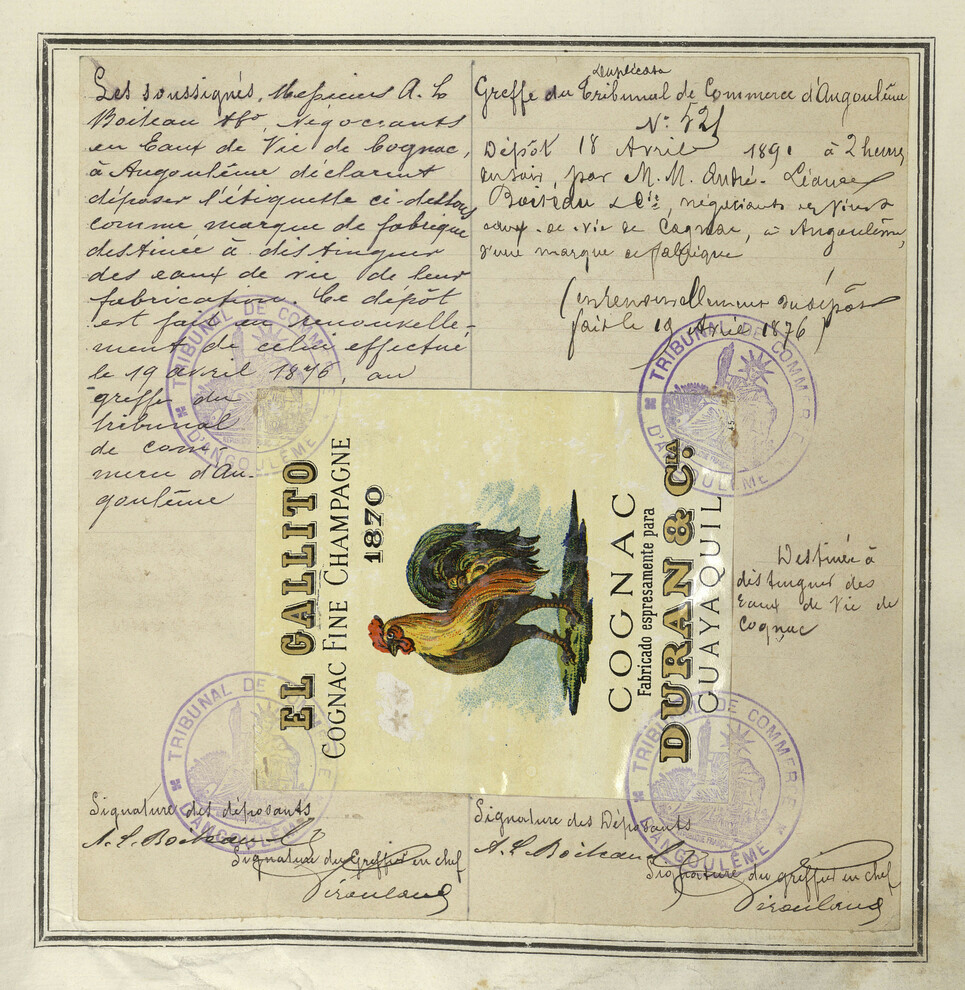 Les soussignés, Messieurs A. L.
Boiteau & Co, Négociants
en Eaux de Vie de Cognac,
à Angoulême déclarent
déposer l'étiquette ci-dessous
comme marque de fabrique
destinée à distinguer
des eaux de vie de leur
fabrication. Ce dépôt
est fait en renouvelle-
ment de celui effectué
le 19 avril 1876, au
greffe du
tribunal
de com-
merce d'An-
goulême
Duplicata
Greffe du Tribunal de Commerce d'Angoulême
N° 521
Dépôt 18 Avril 1891 à 2 heures
du soir, par M.M. André-Léonce
Boiteau & Cie, négociants en Vins &
eaux-de-vie de Cognac, à Angoulême,
d'une marque de fabrique
(en renouvellement du dépôt
fait le 19 Avril 1876)
Destinée à
distinguer des
Eaux de Vie de
Cognac
EL GALLITO
COGNAC FINE CHAMPAGNE
1870
COGNAC
Fabricado espresamente para
DURAN & CIA.
GUAYAQUIL
TRIBUNAL DE COMMERCE
D'ANGOULÊME
TRIBUNAL DE COMMERCE
D'ANGOULÊME
TRIBUNAL DE COMMERCE
D'ANGOULÊME
TRIBUNAL DE COMMERCE
D'ANGOULÊME
Signature des déposants
A. L. Boiteau
Signature du Greffier en chef
Signature des Déposants
A. L. Boiteau
Signature du greffier en chef